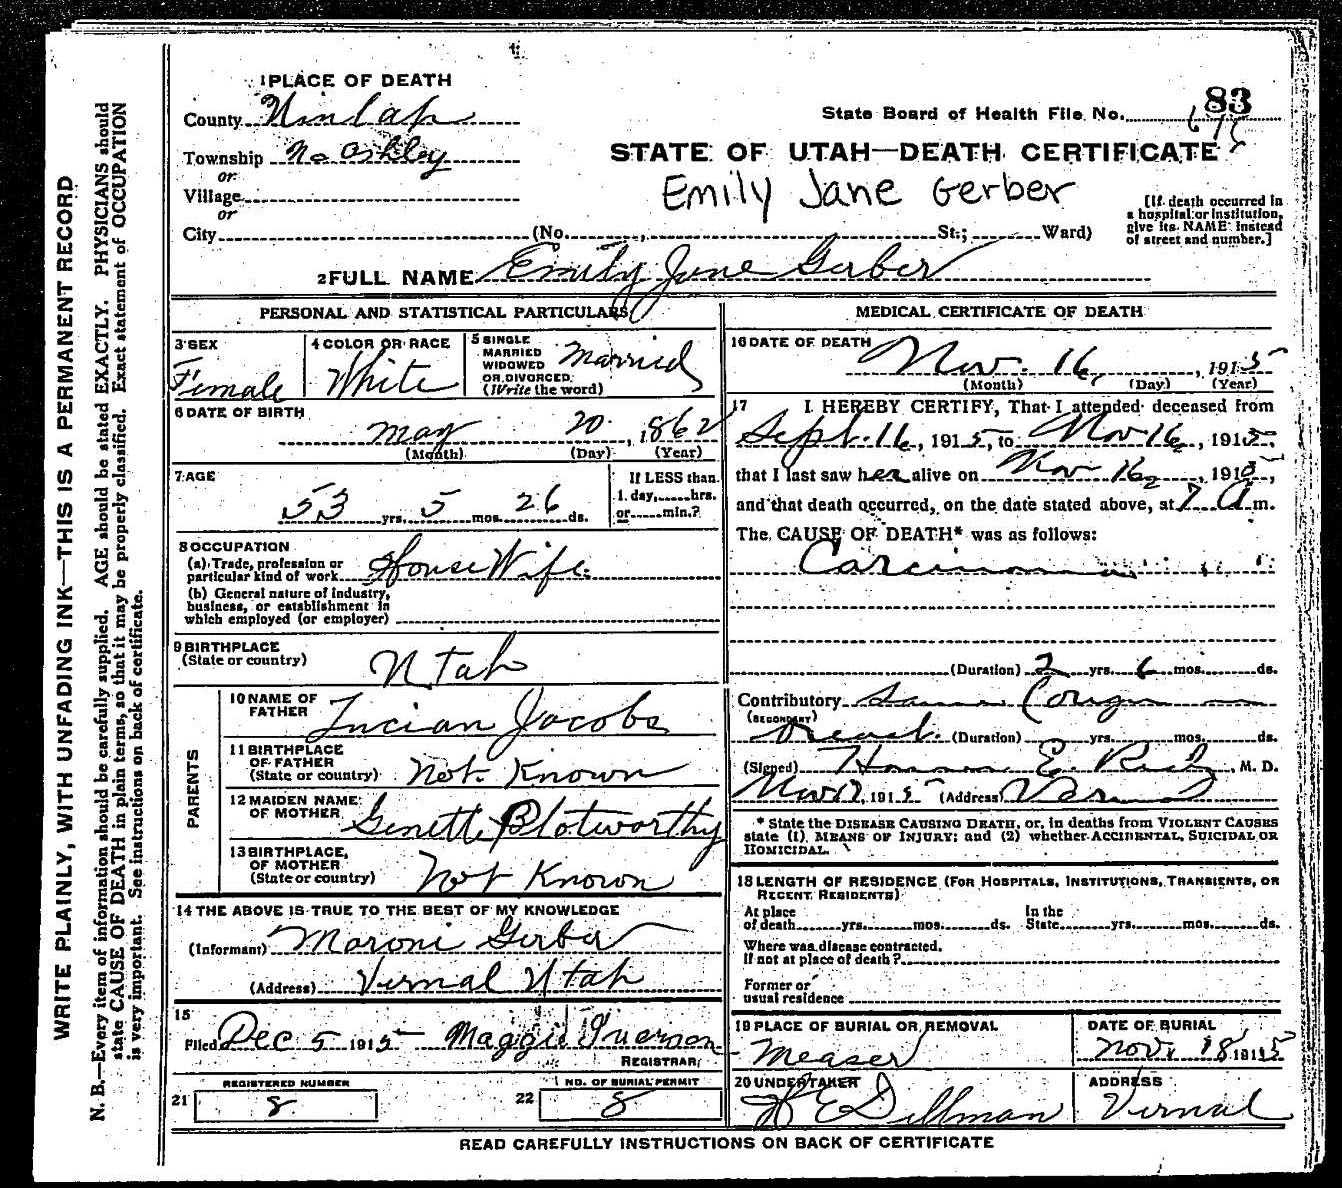 1 PLACE OF DEATH
County
Township No Ashley
or
Village
or
City (No. , St.; Ward)
83
State Board of Health File No.
STATE OF UTAH—DEATH CERTIFICATE
Emily Jane Gerber
[If death occurred in
a hospital or institution,
give its NAME instead
of street and number.]
2 FULL NAME Emily Jane Gerber
PERSONAL AND STATISTICAL PARTICULARS
3 SEX
Female
4 COLOR OR RACE
White
5 SINGLE
MARRIED
WIDOWED
OR DIVORCED
(Write the word)
Married
6 DATE OF BIRTH
May 20, 1862
(Month) (Day) (Year)
7 AGE
53 yrs. 5 mos. 26 ds.
If LESS than
1 day, hrs.
or min.?
8 OCCUPATION
(a) Trade, profession or
particular kind of work House Wife
(b) General nature of industry,
business, or establishment in
which employed (or employer)
9 BIRTHPLACE
(State or country) Utah
PARENTS
10 NAME OF
FATHER Lucian Jacobs
11 BIRTHPLACE
OF FATHER
(State or country) Not Known
12 MAIDEN NAME
OF MOTHER Genette Blotworthy
13 BIRTHPLACE
OF MOTHER
(State or country) Not Known
14 THE ABOVE IS TRUE TO THE BEST OF MY KNOWLEDGE
(Informant) Moroni Gerber
(Address) Vernal Utah
15
Filed Dec 5 1915 Maggie
REGISTRAR
REGISTERED NUMBER
21 8
NO. OF BURIAL PERMIT
22 8
MEDICAL CERTIFICATE OF DEATH
16 DATE OF DEATH
Nov. 16, 1915
(Month) (Day) (Year)
17 I HEREBY CERTIFY, That I attended deceased from
Sept. 16, 1915, to Nov 16, 1915,
that I last saw her alive on Nov 16, 1915,
and that death occurred, on the date stated above, at 7 A m.
The CAUSE OF DEATH* was as follows:
Carcinoma
(Duration) 2 yrs. 6 mos. ds.
Contributory
(SECONDARY)
Breast. (Duration) yrs. mos. ds.
(Signed) E. , M. D.
Nov 17, 1915 (Address) Vernal
* State the DISEASE CAUSING DEATH, or, in deaths from VIOLENT CAUSES
state (1) MEANS OF INJURY; and (2) whether ACCIDENTAL, SUICIDAL OR
HOMICIDAL.
18 LENGTH OF RESIDENCE (FOR HOSPITALS, INSTITUTIONS, TRANSIENTS, OR
RECENT RESIDENTS)
At place
of death yrs. mos. ds.
In the
State yrs. mos. ds.
Where was disease contracted,
if not at place of death?
Former or
usual residence
19 PLACE OF BURIAL OR REMOVAL
Measer
DATE OF BURIAL
Nov. 18, 1915
20 UNDERTAKER
Dillman
ADDRESS
Vernal
READ CAREFULLY INSTRUCTIONS ON BACK OF CERTIFICATE
WRITE PLAINLY, WITH UNFADING INK—THIS IS A PERMANENT RECORD
N. B.—Every item of information should be carefully supplied. AGE should be stated EXACTLY. PHYSICIANS should
state CAUSE OF DEATH in plain terms, so that it may be properly classified. Exact statement of OCCUPATION
is very important. See instructions on back of certificate.